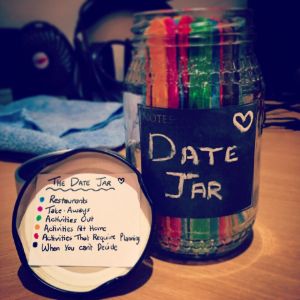 NOTES
DATE
JAR
THE DATE JAR
Restaurants
Take-Aways
Activities Out
Activities At Home
Activities That Require Planning
When You can't Decide